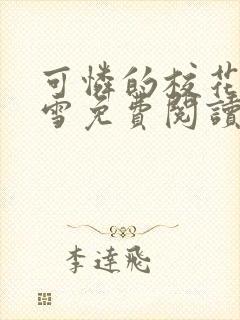 可憐的校花
雪免費閱讀
李達飛